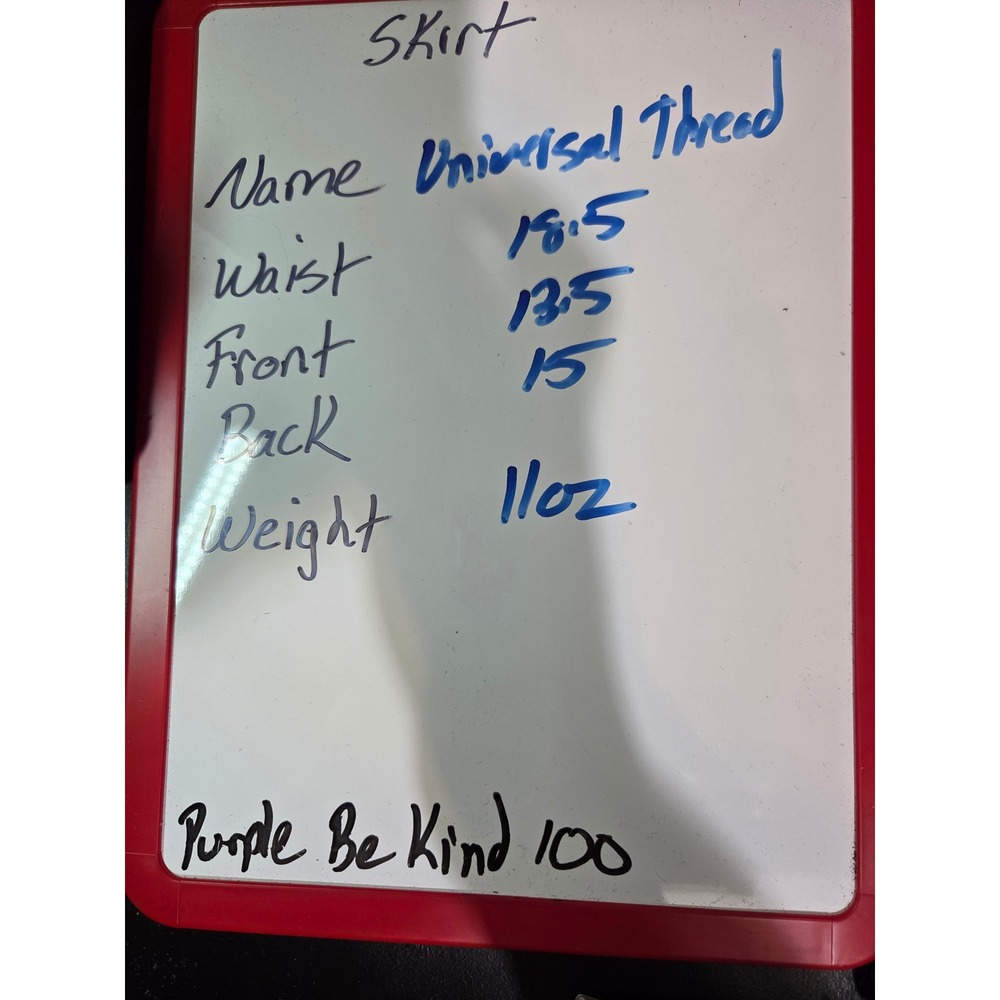 Skirt
Name Universal Thread
Waist 18.5
Front 13.5
Back 15
Weight 11oz
Purple Be Kind 100